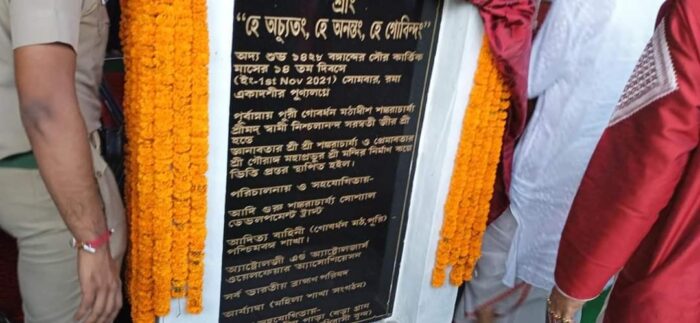 শ্রীং
"হে অচ্যুতং, হে অনন্তং, হে গোবিন্দং"
অদ্য শুভ ১৪২৮ বঙ্গাব্দের সৌর কার্ত্তিক
মাসের ১৪ তম দিবসে
(ইং-1st Nov 2021) সোমবার, রমা
একাদশীর পূণ্যলগ্নে
পূর্বাম্নায় পুরী গোবর্ধন মঠাদীশ শঙ্করাচার্য্য
শ্রীমদ্ স্বামী নিশ্চলানন্দ সরস্বতী জীর শ্রী
হস্তে
জ্ঞানাবতার শ্রী শ্রী শঙ্করাচার্য্য ও প্রেমাবতার
শ্রী গৌরাঙ্গ মহাপ্রভুর শ্রী মন্দির নির্মাণ কল্পে
ভিত্তি প্রস্তর স্থাপিত হইল।
পরিচালনায় ও সহযোগিতায়-
আদি গুরু শঙ্করাচার্য্য সোশ্যাল
ডেভলপমেন্ট ট্রাস্ট
আদিত্য বাহিনী (গোবর্ধন মঠ,পুরি)
পশ্চিমবঙ্গ শাখা।
অ্যাস্ট্রোলজী এণ্ড অ্যাস্ট্রোলজার্স
ওয়েলফেয়ার অ্যাসোশিয়েসন
সর্ব ভারতীয় ব্রাহ্মণ পরিষদ
আর্য্যাদ্বা (মহিলা শাখা সংগঠন)
সহযোগিতায়-
পাড়া (বড়া গ্রাম